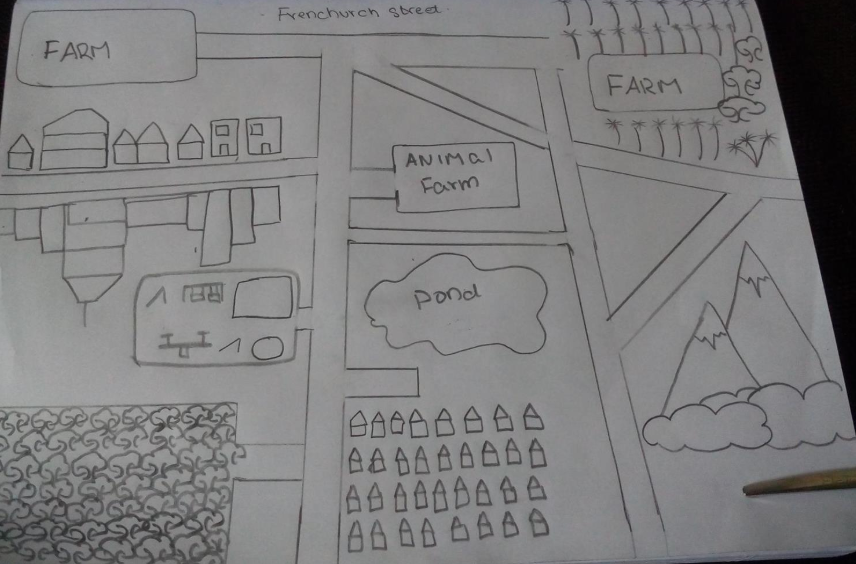 Frenchurch street.
FARM
FARM
ANIMAL
Farm
Pond